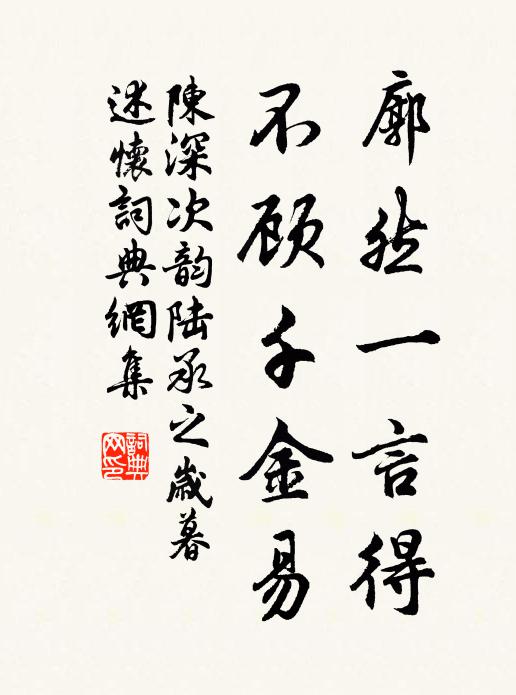 廓然一言得
不顾千金易
陳深次韵陆承之歲暮
述懷詞典網集
詞典
网印